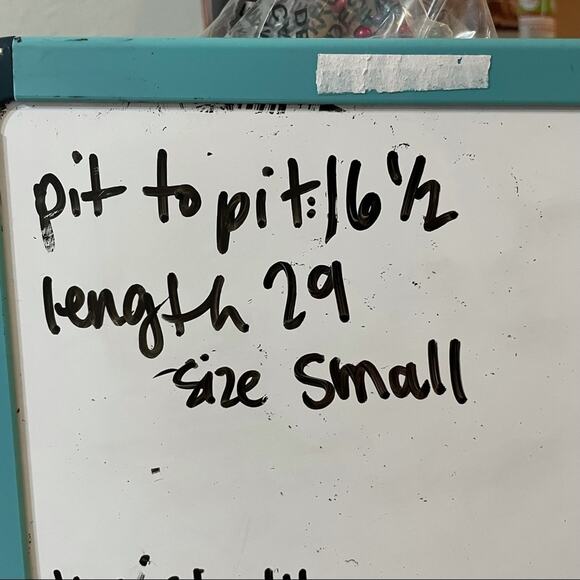 pit to pit: 16 1/2
length 29
-size small